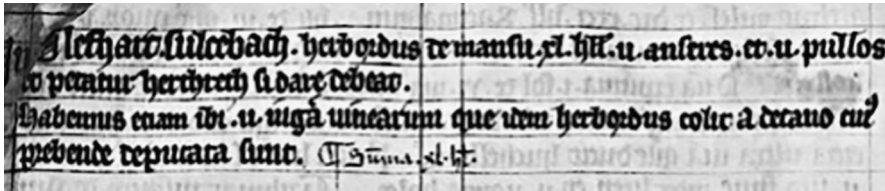 Nethart. sulcebach. herbordus de mansu. xl. hll. u. anseres. et. u. pullos
et petatur herthrech si dare debeat.
habemus etiam ibi. u. iuga uinearum que idem herbordus colit a decano cui9
prebende deputata sunt. Summa. xl. hll.